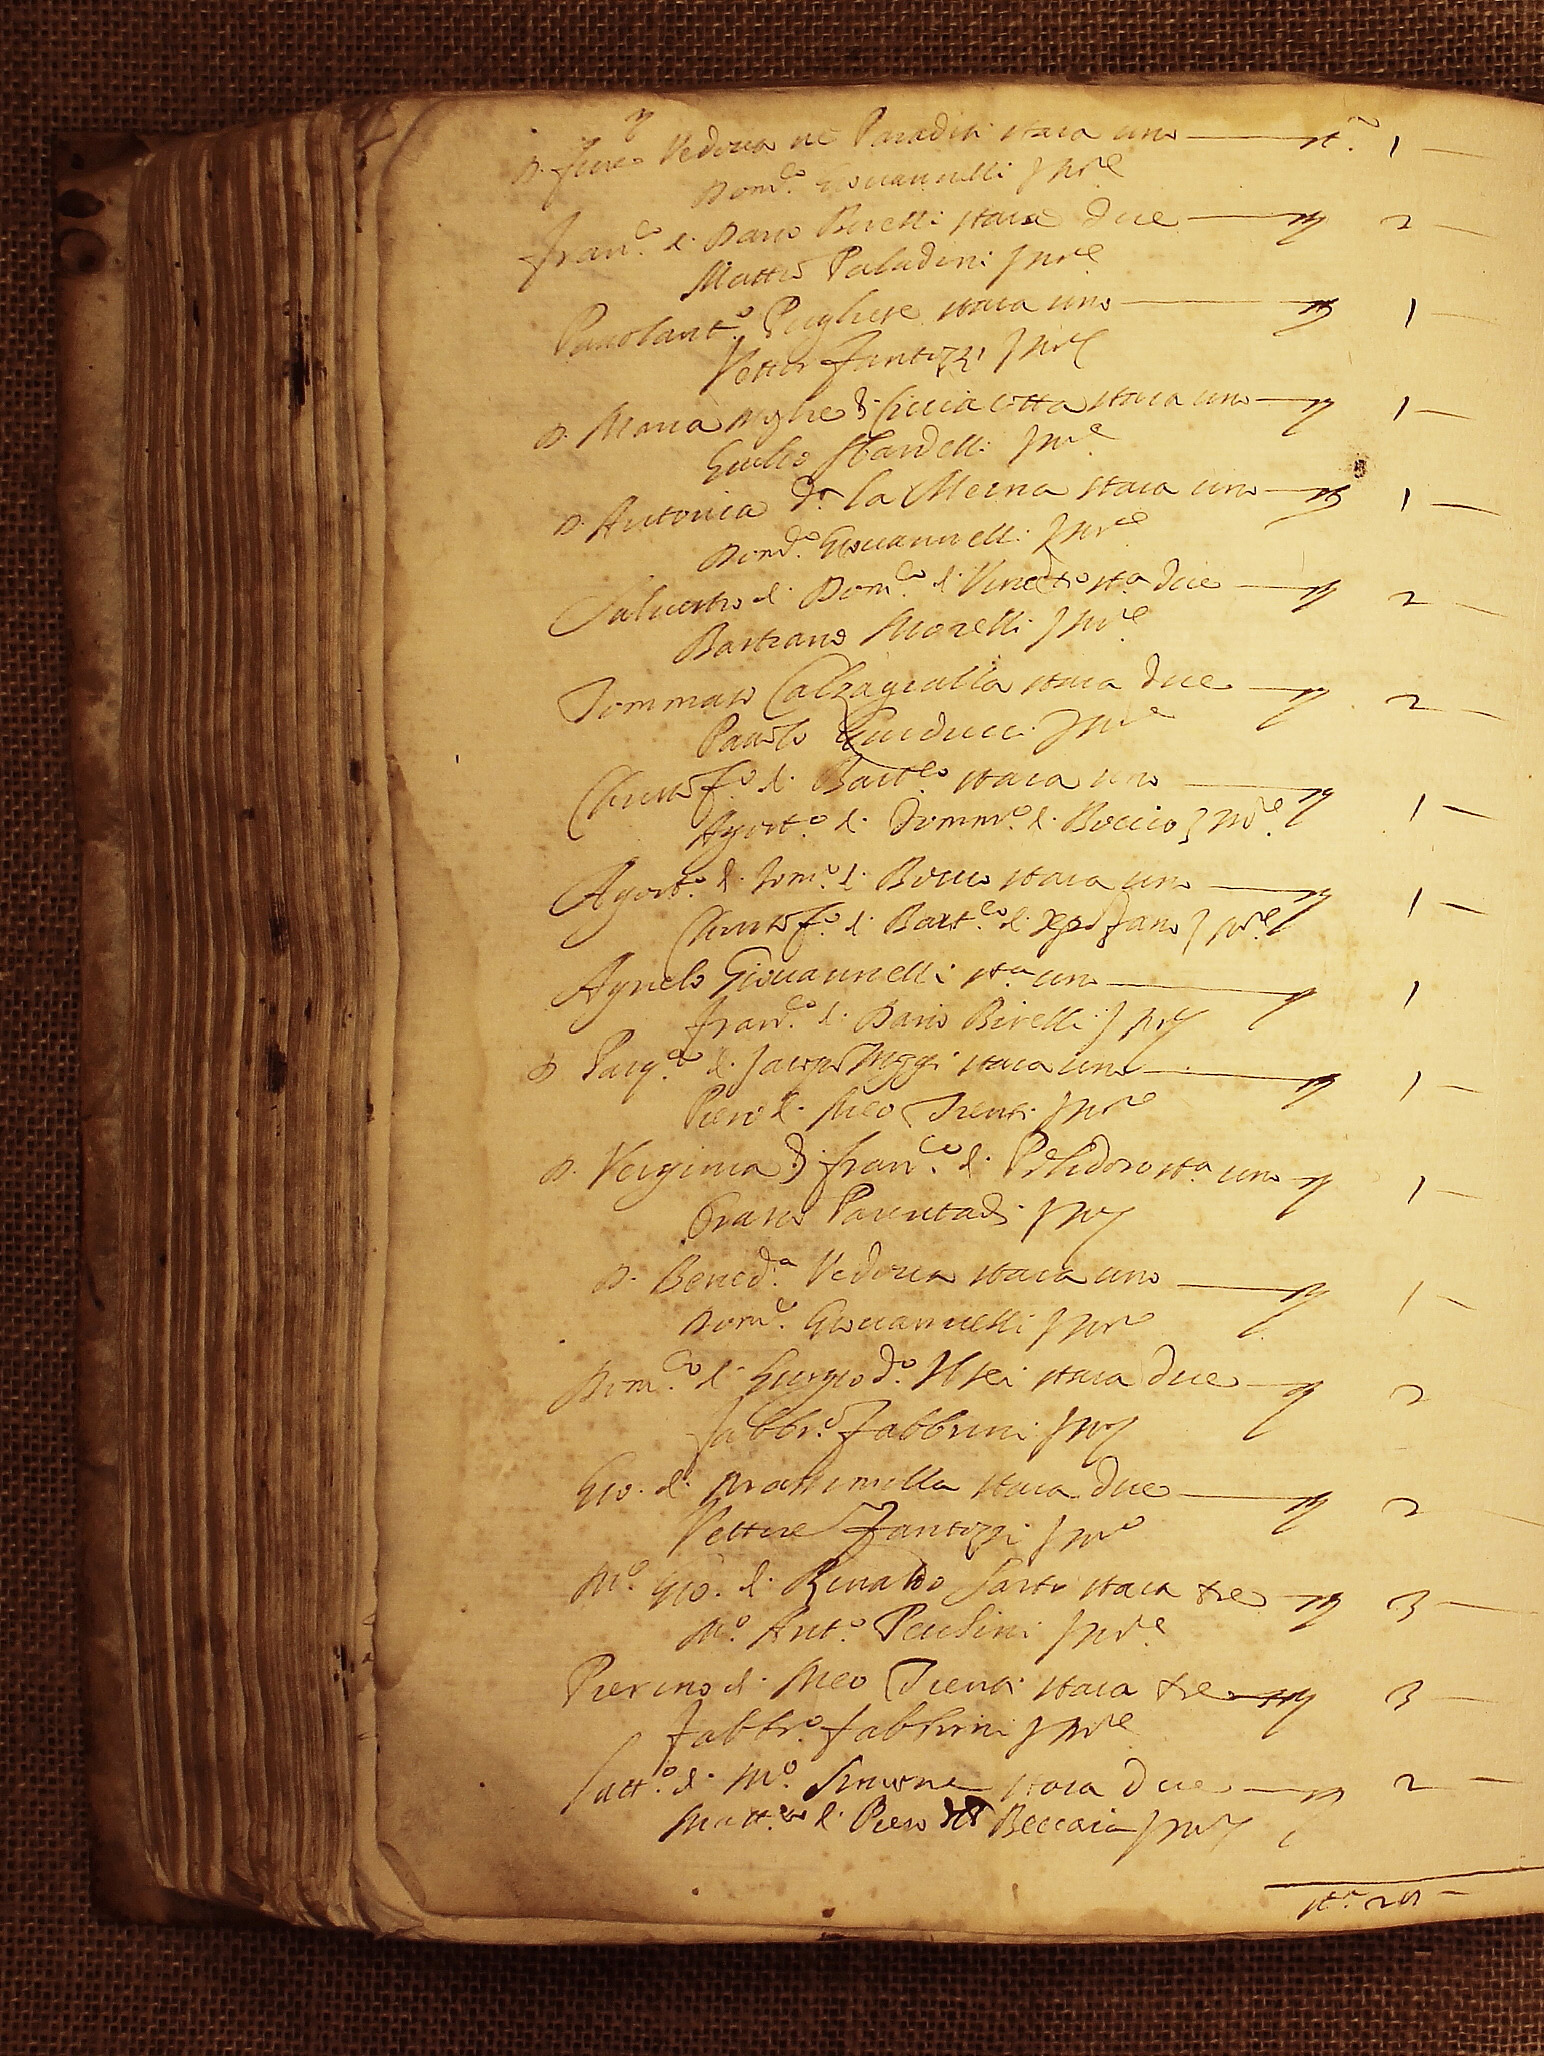 D. Vedova ne Paradisi staia uno st.a 1
Dom.co Giovannelli p re
Fran.co d. Dario Birelli staia due 2
Matteo Paladini p re
Pauolant.o Pugliese staia uno 1
Vettor Fantozzi p re
D. Maria moglie d. Ciccia cotta staia uno 1
Giulio p re
D. Antonia d. la Merna staia uno 1
Dom.co Giovannelli p re
Salvestro d. Dom.co d. st.a due 2
Bastiano Morelli p re
Tommaso Calzagialla staia due 2
Pauolo Guiducci p re
Christof.o d. Bart.eo staia uno 1
Agost.o d. Tomm.o d. Boccio p re
Agost.o d. Tom.o d. Boccio staia uno 1
Christof.o d. Bart.eo d. p re
Agnelo Giovannelli st.a uno 1
Fran.co d. Dario Birelli p re
D. Pasq.a d. Jacopo staia uno 1
Piero d. Meo Trenti p re
D. Verginia d. Fran.co d. Polidoro st.a uno 1
Orazio Parentadi p re
D. Bened.a Vedova staia uno 1
Dom.co Giovannelli p re
Dom.co d. Giorgio d.o staia due 2
Fabbr.o Fabbrini p re
Gio. d. staia due 2
Vettore Fantozzi p re
M.o Gio. d. Rinaldo Sarto staia tre 3
M.o Ant.o p re
Pierino d. Meo Trenti staia tre 3
Fabbr.o Fabbrini p re
d. M.o Simone staia due 2
Matt.eo d. Piero Beccaia p re
st.a